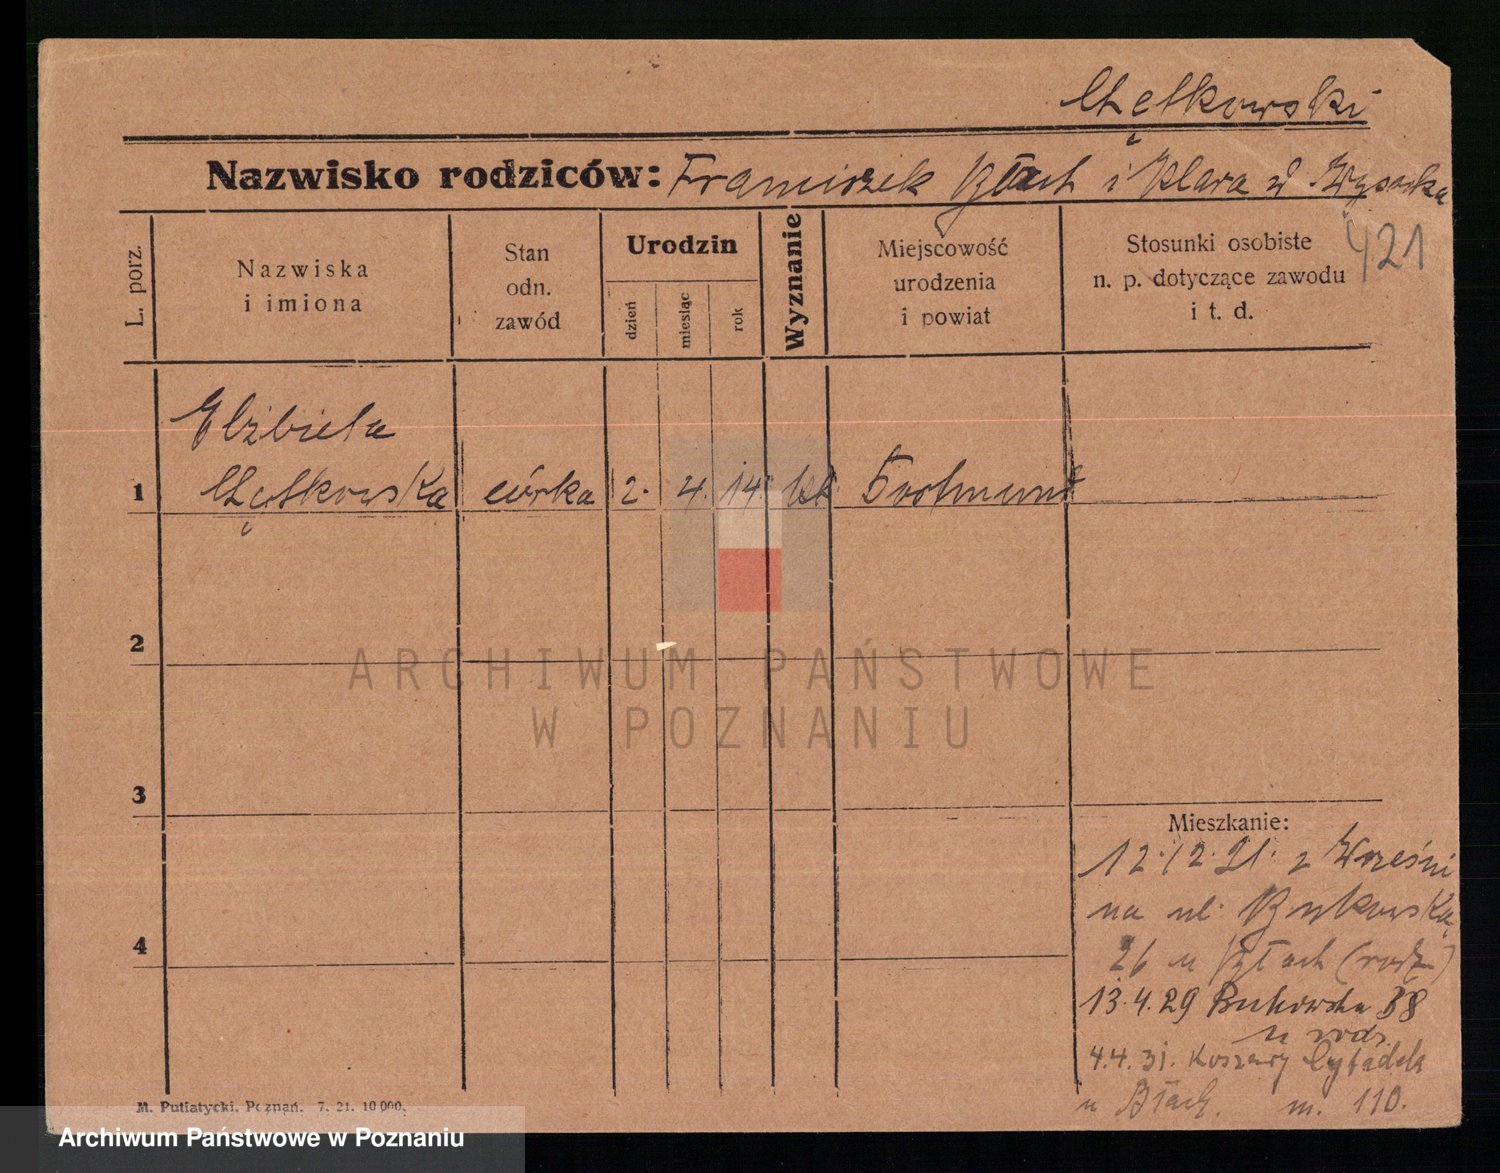 Chełkowski
Nazwisko rodziców: Franciszek Błach i Klara z Wysocka
421
L. porz.
Nazwiska
i imiona
Stan
odn.
zawód
Urodzin
dzień
miesiąc
rok
Wyznanie
Miejscowość
urodzenia
i powiat
Stosunki osobiste
n. p. dotyczące zawodu
i t. d.
Elżbieta
1 córka 2. 4. 14. kat Dortmund
2
3
4
Mieszkanie:
12.12.21. z Wrześni
na ul. Bukowska
26 u Błach (rodz)
13.4.29 Bukowska 38
u rodz.
4.4.31. Koszary Cytadela
u Błach. m. 110.
M. Putiatycki, Poznań. 7. 21. 10 000.
ARCHIWUM PAŃSTWOWE
W POZNANIU
Archiwum Państwowe w Poznaniu